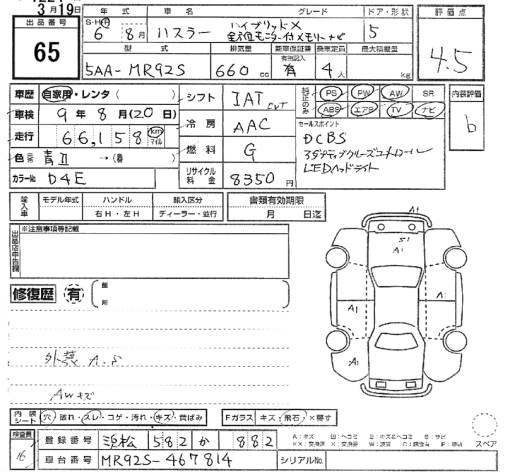 3月19日
出品番号
65
年式 車名 グレード ドア・形状
S・H・R 6年 8月 ハスラー ハイブリッドX 5
全方位モニター付メモリーナビ
型式 排気量 新車保証書 乗車定員 最大積載量
5AA-MR92S 660cc 有 4人 kg
評価点
4.5
車歴 自家用・レンタ
車検 9年8月(20日)
走行 66,158 km マイル
色 青II →
カラーNo D4E
シフト IAT CVT
冷房 AAC
燃料 G
リサイクル料金 8350円
純正のみ PS PW AW SR
ABS エアB TV ナビ
セールスポイント
DCBS
アダプティブクルーズコントロール
LEDヘッドライト
内装評価
b
輸入車 モデル年式 ハンドル 輸入区分
年 右H・左H ディーラー・並行
書類有効期限
月 日迄
※注意事項等記載
修復歴 有
外装 A.S
AWキズ
A1
S1
A1
A1
A1
A1
内装シート 穴 破れ・スレ・コゲ・汚れ・キズ・黄ばみ
Fガラス キズ・飛石・X要す
検査員 16
登録番号 浜松 582 か 882
車台番号 MR92S-467814
シリアルNo.
スペア